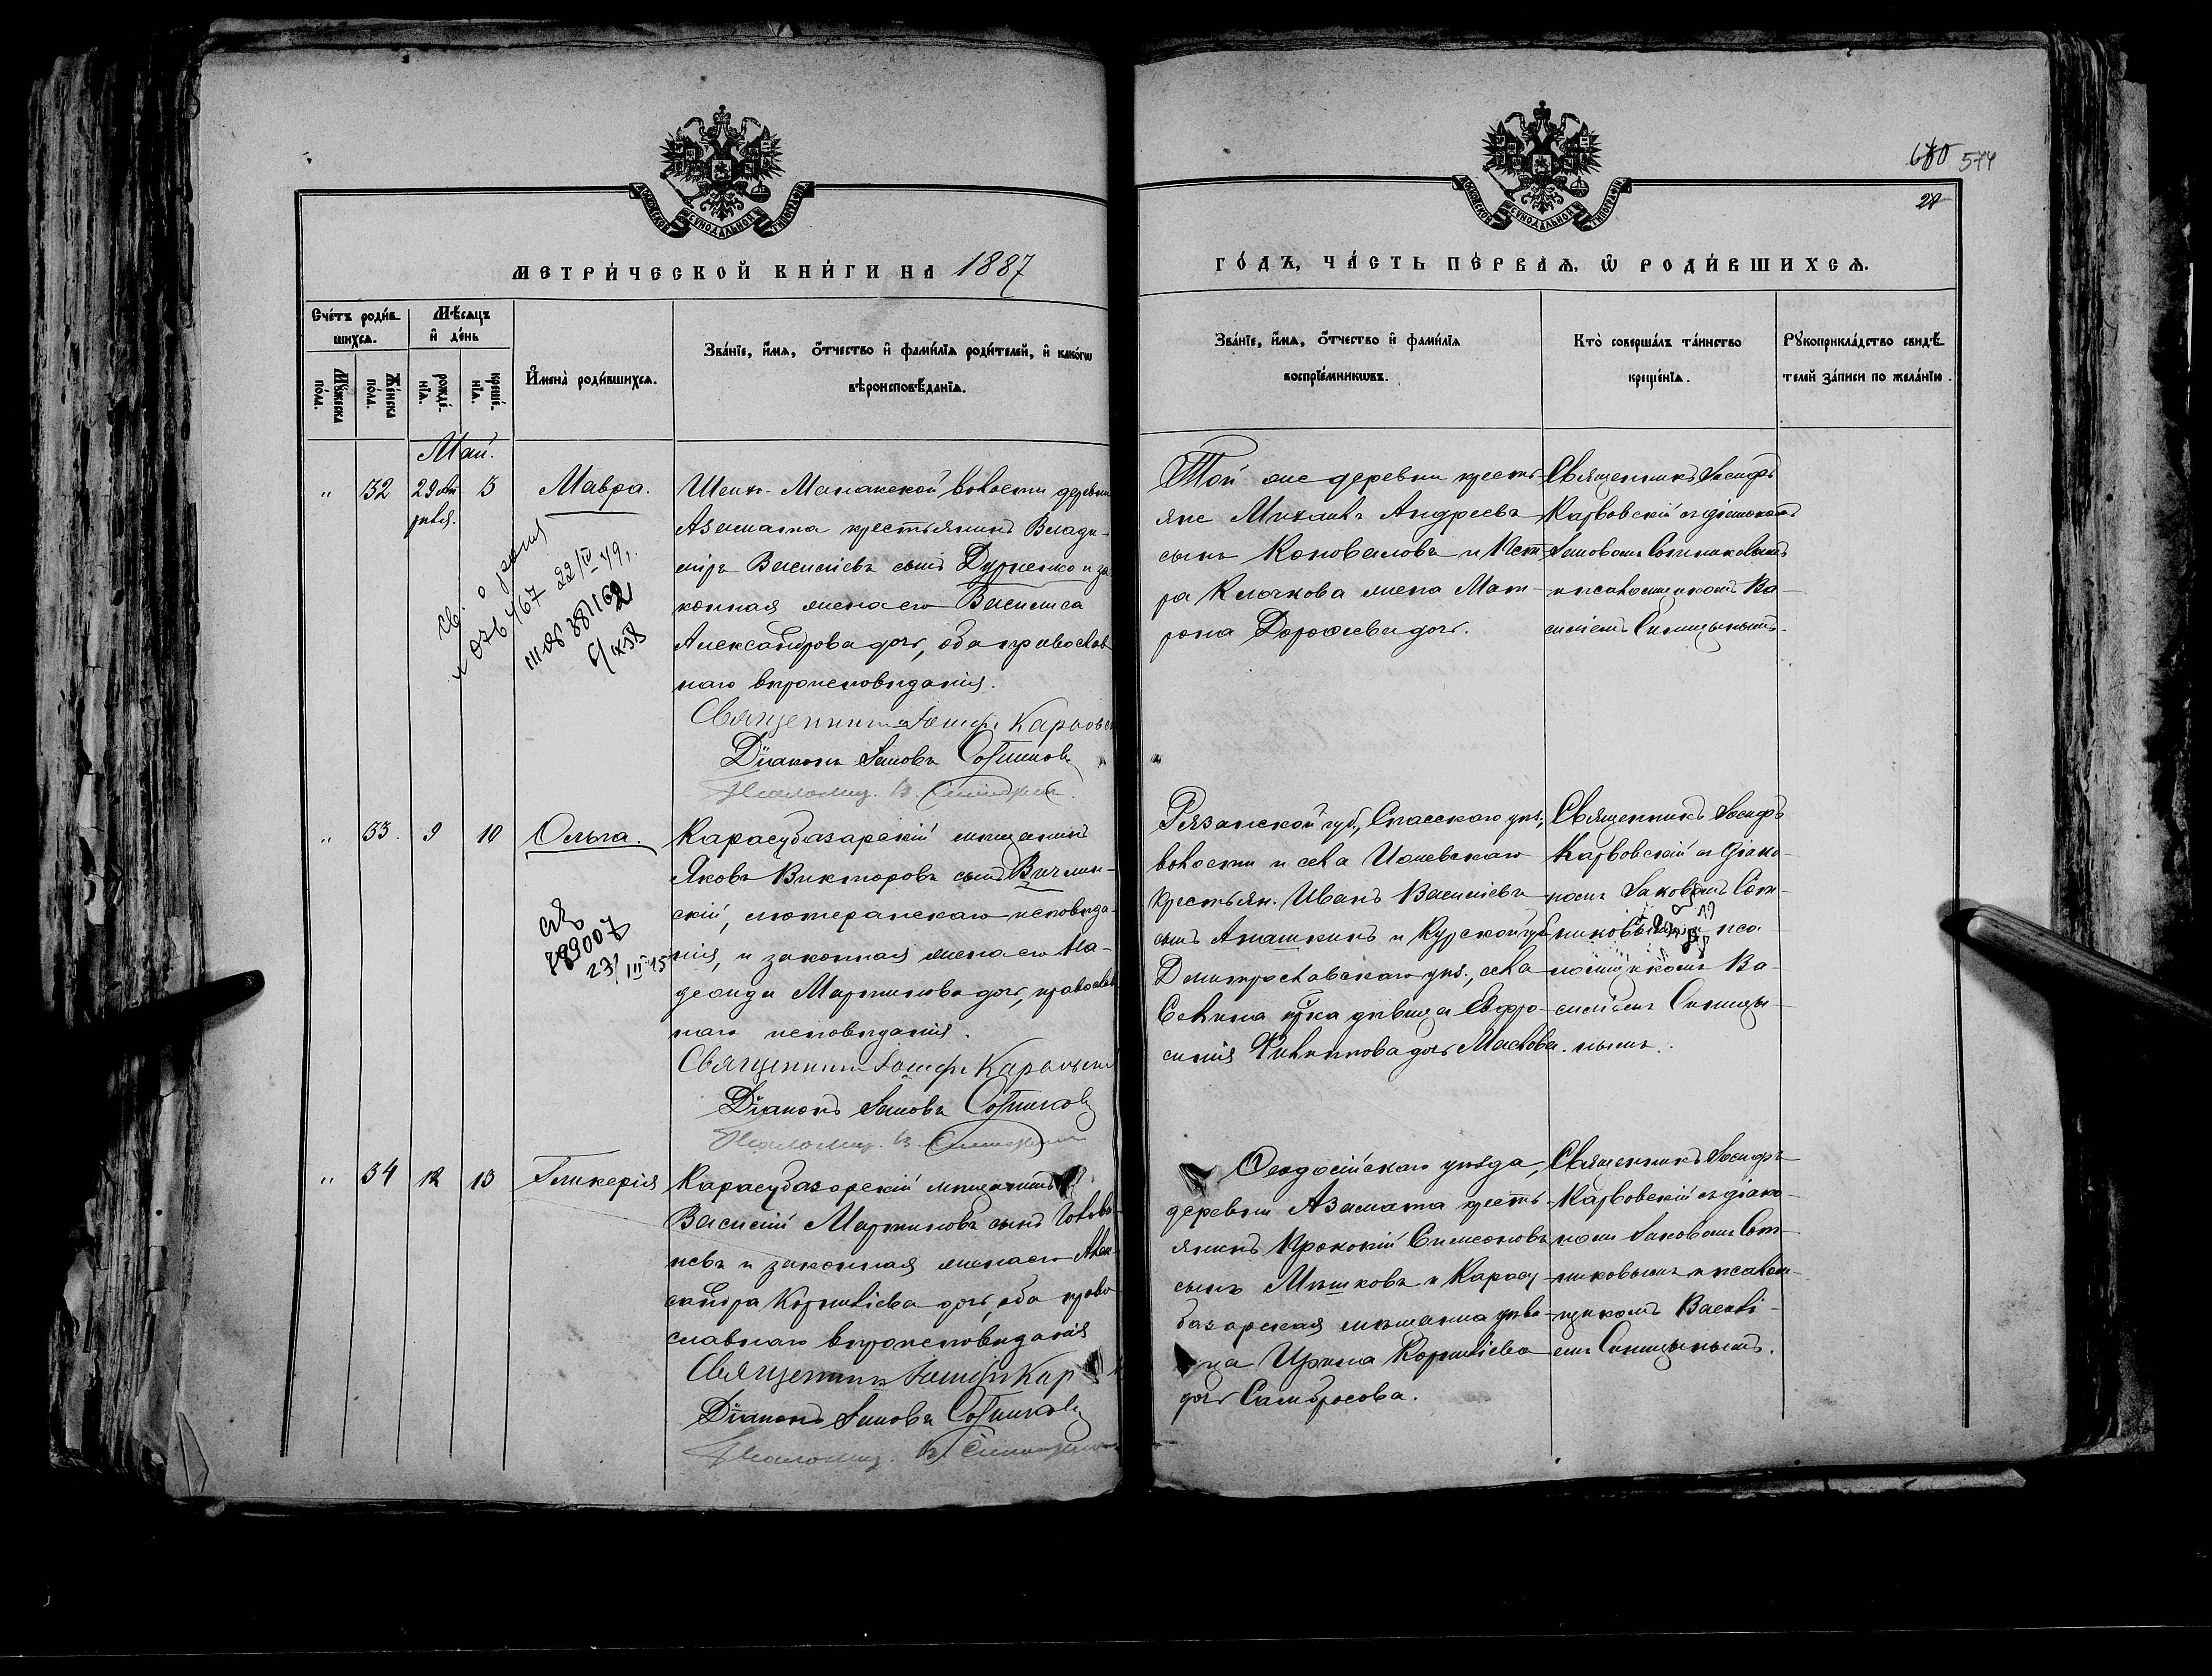 680 574
28
МЕТРИ́ЧЕСКОЙ КНИ́ГИ НА 1887
ГО́ДЪ, ЧА́СТЬ ПЕ́РВАѦ, Ѡ҆ РОДИ́ВШИХСѦ.
Сче́тъ роди́в-
шихсѧ.
Мꙋ́жеска по́ла.
Же́нска по́ла.
Мѣ́сѧцъ
и҆ де́нь
рожде́-нїѧ.
креще́-нїѧ.
И҆мена̀ роди́вшихсѧ.
Зва́нїе, и҆́мѧ, о҆́тчество и҆ фами́лїѧ роди́телей, и҆ како́гѡ
вѣроисповѣ́данїѧ.
Зва́нїе, и҆́мѧ, о҆́тчество и҆ фами́лїѧ
воспрїе́мникѡвъ.
Кто̀ соверша́лъ та́инство
креще́нїѧ.
Рꙋкоприкла́дство свидѣ́-
телей за́писи по жела́нїю.
Май.
„ 32 29 Ап-
рѣля. 3 Мавра.
деревни
Азамата крестьянинъ Влади-
міръ Васильевъ сынъ Дурненко и за-
конная жена его Василиса
Александрова дочь, оба православ-
наго вѣроисповѣданія.
Священникъ Іосифъ Карвовск
Діаконъ Іаковъ Сотниковъ
Псаломщ. В. Синицынъ
Той же деревни кресть-
яне Михаилъ Андреевъ
сынъ Коноваловъ и
Клочкова жена Мат-
рона Дорофеева дочь.
Священникъ Іосифъ
Карвовскій съ діакономъ
Іаковомъ Сотниковымъ
и псаломщикомъ Ва-
силіемъ Синицынымъ.
22/IV 49
„ 33. 9 10 Ольга.
Карасубазарскій мѣщанинъ
Яковъ Викторовъ сынъ
скій, лютеранскаго исповѣда-
нія, и законная жена его На-
дежда Мартинова дочь, православ-
наго исповѣданія.
Священникъ Іосифъ Карвовскі
Діаконъ Іаковъ Сотниковъ
Псаломщ. В. Синицынъ
789007
23/III-15
Рязанской губ., Спасскаго уѣз.,
волости и села Ижевскаго
крестьян. Иванъ Васильевъ
сынъ Анашкинъ и Курской губ.
Дмитровскаго уѣз., села
дѣвица Евфро-
синія Филиппова дочь Маслова.
Священникъ Іосифъ
Карвовскій съ діако-
номъ Іаковомъ Сот-
никовымъ и пса-
ломщикомъ Ва-
силіемъ Синицы-
нымъ.
„ 34 12 13 Гликерія
Карасубазарскій мѣщанинъ
Василій Мартиновъ сынъ Голова-
невъ и законная жена его Алек-
сандра Корнилієва дочь, оба право-
славнаго вѣроисповѣданія
Священникъ Іосифъ Кар
Діаконъ Іаковъ Сотниковъ
Псаломщ. В. Синицынъ
Ѳеодосійскаго уѣзда,
деревни Азамата кресть-
янинъ Прокопій Симеоновъ
сынъ Мѣшковъ и Карасу-
базарская мѣщанка дѣви-
ца Ирина Корнилієва
дочь Самбросова.
Священникъ Іосифъ
Карвовскій съ діако-
номъ Іаковомъ Сот-
никовымъ и псалом-
щикомъ Василі-
емъ Синицынымъ.